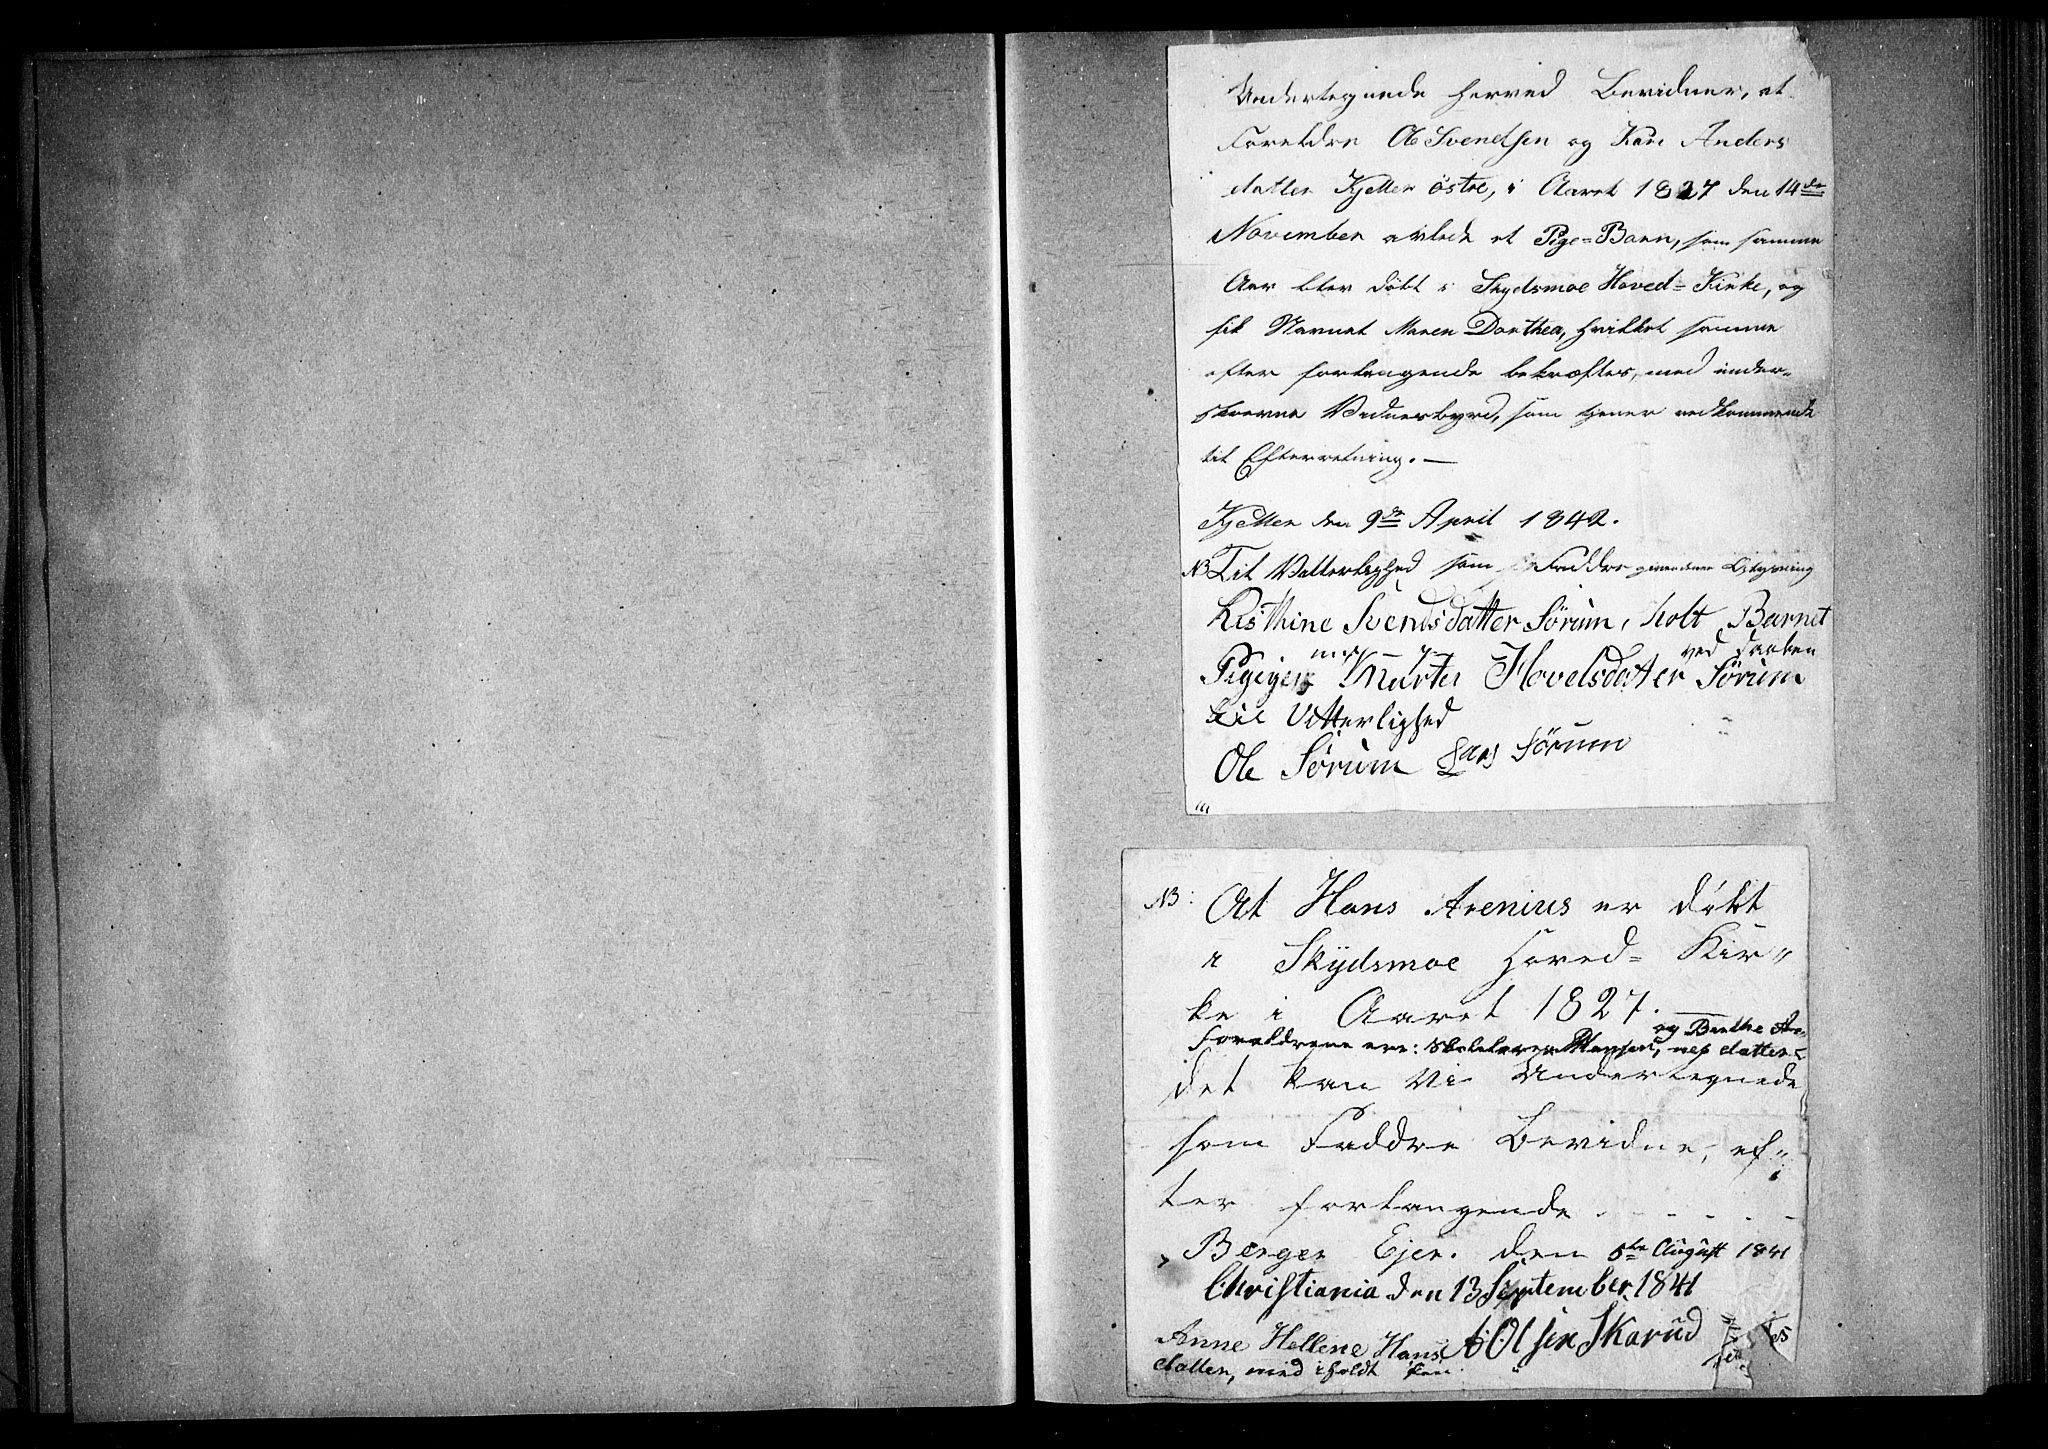 Undertegnede herved Bevidner, at
Foreldre Ole Svendsen og Kari Anders
datter Kjeller østre, i Aaret 1827 den 14de
November avlede et Pige=Barn, som samme
Aar blev døbt i Skydsmoe Hoved=Kirke, og
fik Navnet Maren Dorthea, hvilket samme
efter forlangende bekræftes, med under-
skrevne Vidnesbyrd, som tjener vedkommende
til Efterretning. —
Kjeller den 9de April 1842.
NB Til Vitterlighed som Faddre
Kisthine Svendsdatter Sørum, holt Barnet
ved Daaben
Pigigen Marte Hovelsdatter Sørum
til Vitterlighed
Ole Sørum Lars Sørum
NB: At Hans Arenius er døbt
i Skydsmoe Hoved= Kir„
ke i Aaret 1827. —
og Berthe Are-
Foreldrene ere: Hansen, nes datter
det kan Vi Undertegnede
som Faddre Bevidne, ef„
ter forlangende - - - - - -
Berger Ejer. den 5te August 1841
Christiania den 13 September 1841
Anne Hellene Hans A. Olsen Skarud
datter, med iholdt Pen